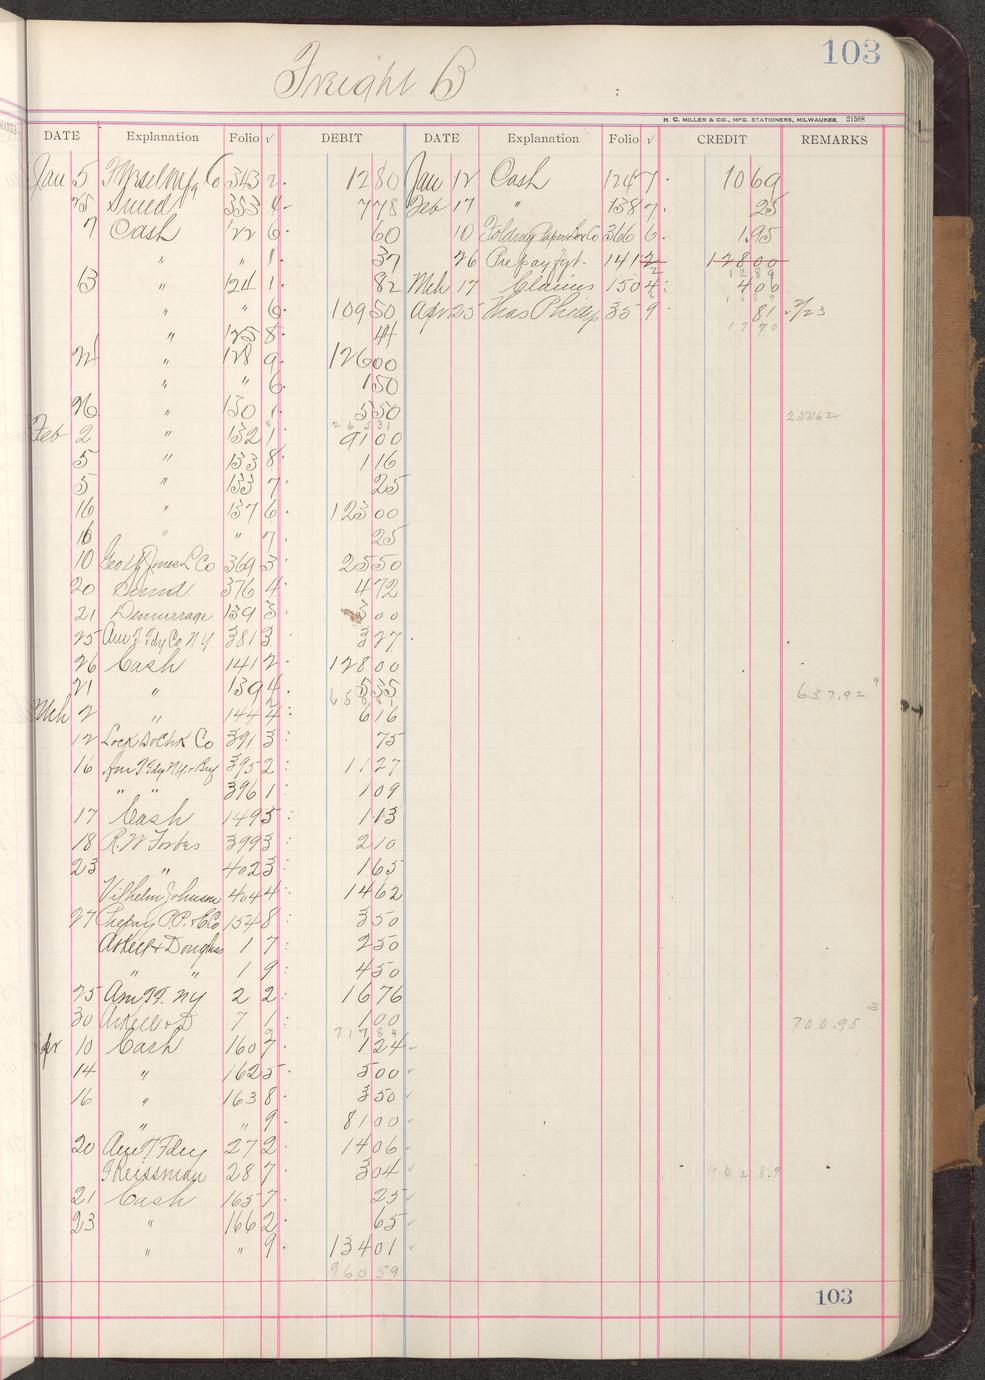 103
Freight B
H. C. MILLER & CO., MFG. STATIONERS, MILWAUKEE. 21588
DATE Explanation Folio √ DEBIT DATE Explanation Folio √ CREDIT REMARKS
Jan 5 Mfg Co 343 2 12 80 Jan 12 Cash 124 7 10 69
25 Sund 353 4 7 78 Feb 17 " 138 7 25
7 Cash 122 6 60 10 Folding Paper Box Co 366 6 1.95
" " 1 37 26 Prepay fgt. 141 2 128 00
12 89
13 " 124 1 82 Mch 17 Claims 150 4 4 00
16 89
" " 6 109 50 Apr 25 Thos Phillip 35 9 81 √ 7/23
17 70
" 125 8 44
22 " 128 9 126 00
" " 6 1 50
26 " 130 1 5 50 254 62
265 31
Feb 2 " 132 1 91 00
5 " 133 8 1 16
5 " 133 7 25
16 " 137 6 123 00
16 " " 7 25
10 Geo H Jones L Co 369 3 25 50
20 Sund 376 4 4 72
21 Demurrage 139 3 3 00
25 Am T. Fdy Co N.Y 381 3 3 27
26 Cash 141 2 128 00
21 " 139 4 5 35 637.92
Mch 2 " 144 4 6 16
12 Lock Co 391 3 75
16 Am T Fdy N.Y. 395 2 11 27
" " 396 1 1 09
17 Cash 149 5 1 13
18 R. W Forbes 399 3 2 10
23 " 402 3 1 65
Vilhelm Johnson 404 4 14 62
27 Prepay P.P. & C Co 154 8 3 50
Askell & Douglas 1 7 2 50
" " 1 9 4 50
25 Am T F. NY 2 2 16 76
30 Askell & D 7 1 1 00 700.95
717 84
Apr 10 Cash 160 7 1 24
14 " 162 5 5 00
16 " 163 8 3 50
" " 9 81 00
20 Am T Fdry 27 2 14 06
28 7 3 04 942 89
21 Cash 165 7 25
23 " 166 2 65
" " 9 134 01
960 59
103